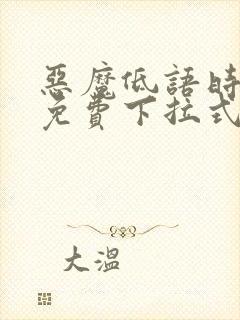 惡魔低語時
免費下拉式
大溫